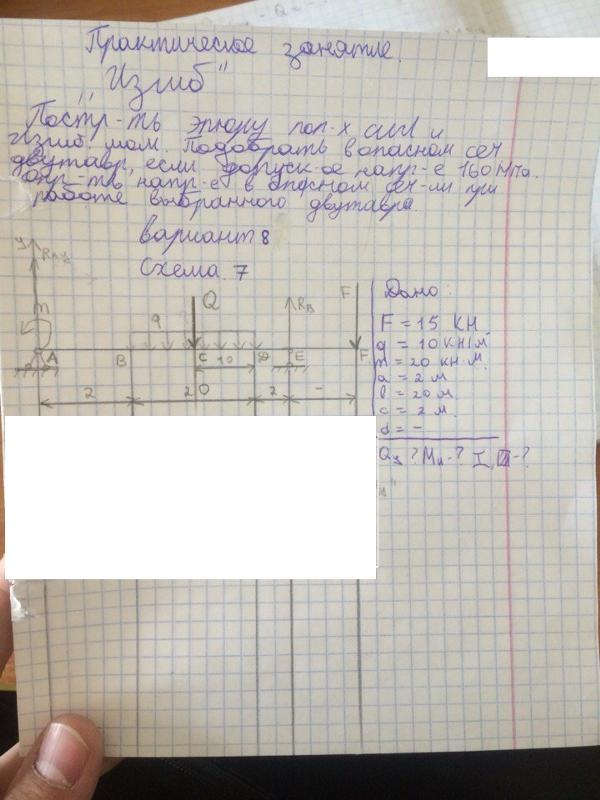 Практическое занятие.
"Изгиб"
Постр-ть эпюру поп-х сил и
изгиб. мом. Подобрать в опасном сеч
двутавр, если допуск-ое напр-е 160 МПа.
Опр-ть напр-е в опасном сеч-ии при
работе выбранного двутавра.
вариант 8
Схема 7
y RAy
m
q
Q
RB
F
A B C 10 D E F
2 20 2 -
Дано:
F = 15 кН.
q = 10 кН/м.
m = 20 кН м.
a = 2 м
b = 20 м.
c = 2 м.
d = -
Qy ? Mи-? I, -?